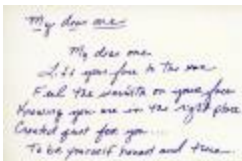 My dear one
My dear one
Lift your face to the sun
Feel the on your face
Knowing you are in the right place
Created just for you...
To be yourself honest and true...